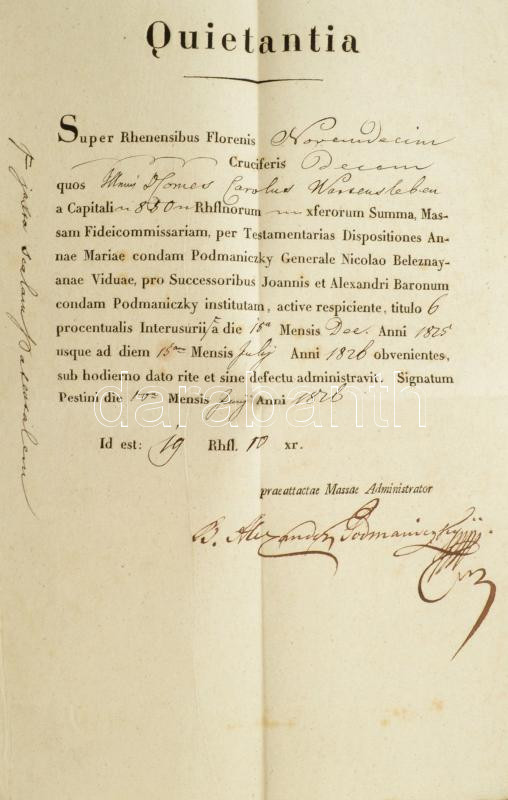 Quietantia
Super Rhenensibus Florenis Novemdecim
Cruciferis Decem
quos Comes Carolus Wartensleben
a Capitali 830 Rhflnorum xferorum Summa, Mas-
sam Fideicommissariam, per Testamentarias Dispositiones An-
nae Mariae condam Podmaniczky Generale Nicolao Beleznay-
anae Viduae, pro Successoribus Joannis et Alexandri Baronum
condam Podmaniczky institutam, active respiciente, titulo 6
procentualis Interusurii a die 15a Mensis Dec. Anni 1825
usque ad diem 15am Mensis Julij Anni 1826 obvenientes,
sub hodierno dato rite et sine defectu administravit. Signatum
Pestini die Mensis Anni 1826
Id est: 19 Rhfl. 10 xr.
praeattactae Massae Administrator
B. Alexander Podmaniczky
juxta scalam
darabanth